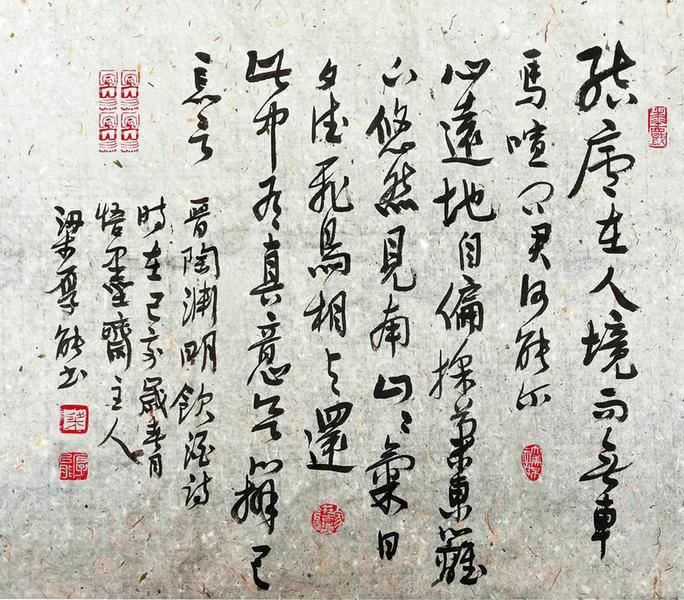 結廬在人境而無車
馬喧問君何能尔
心遠地自偏採菊東籬
下悠然見南山〻氣日
夕佳飛鳥相与還
此中有真意欲辨已
忘言
晋陶淵明飲酒詩
時在己亥歲春月
悟墨齋主人
梁厚能书